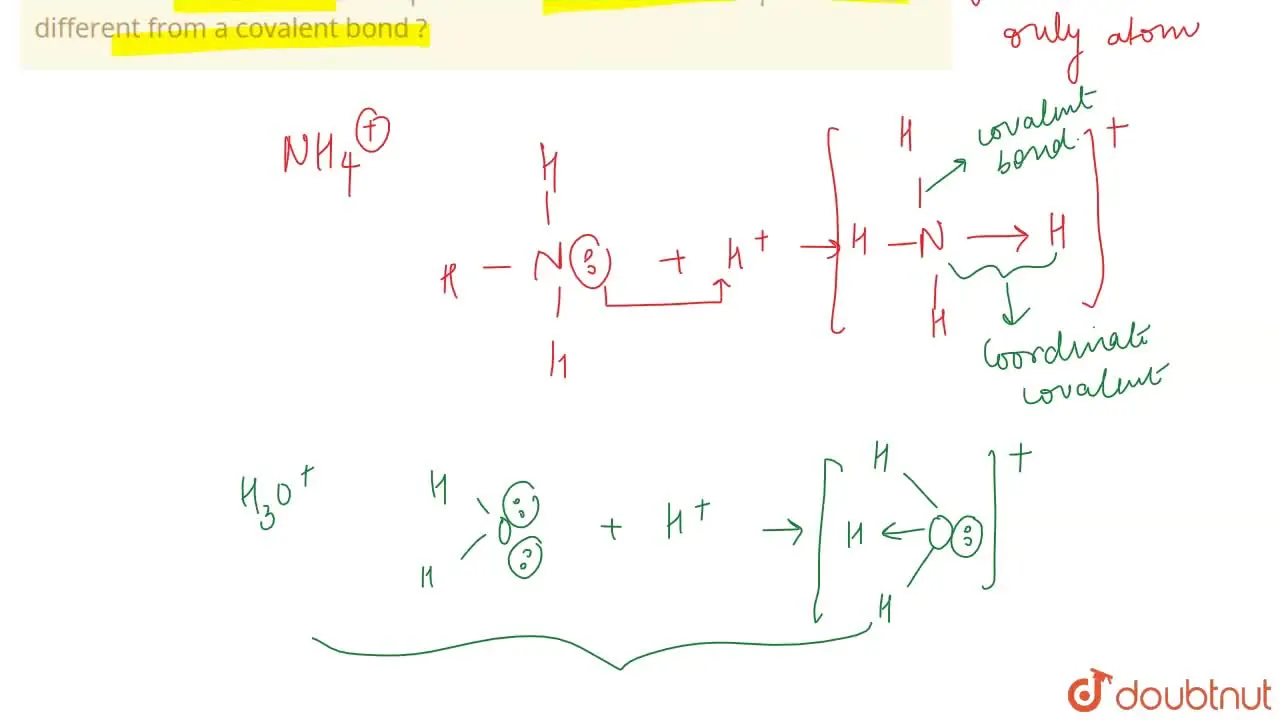 different from a covalent bond ?
only atom
NH4+
H
H – N + H+ → H – N → H
H
H
+
covalent
bond.
H
coordinate
covalent
H3O+
H
O + H+ → H ← O
H
H
+
H
doubtnut